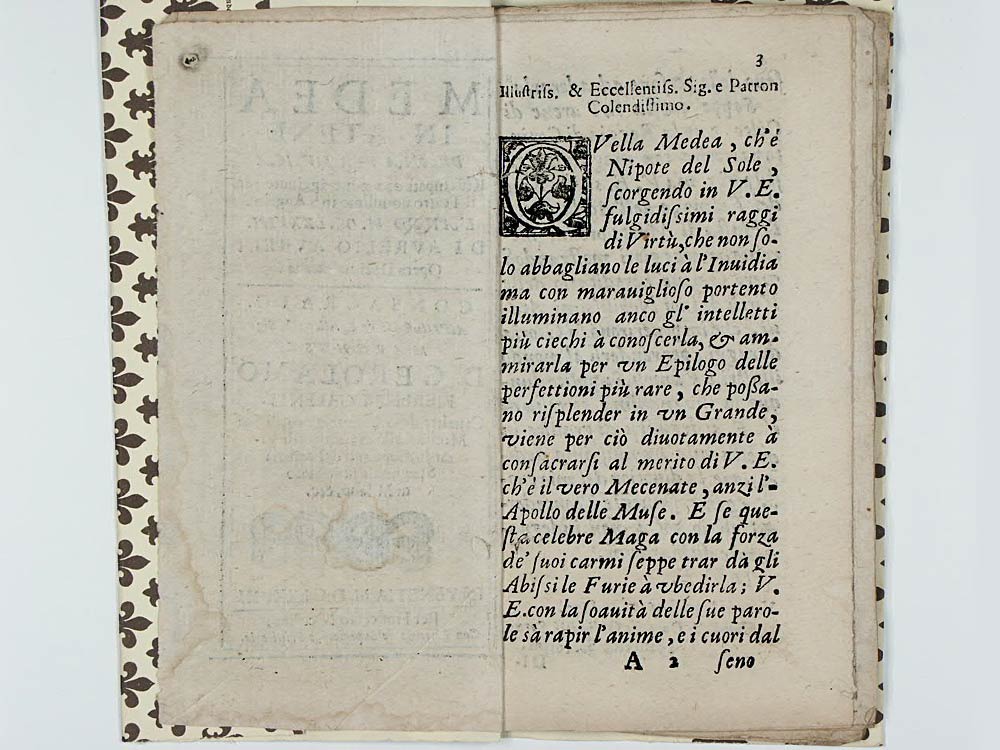 3
Illustriss. & Eccellentiss. Sig. e Patron
Colendissimo.
QVella Medea, ch'é
Nipote del Sole,
ſcorgendo in V. E.
fulgidiſsimi raggi
di Virtù, che non ſo-
lo abbagliano le luci à l'Inuidia
ma con marauiglioſo portento
illuminano anco gl' intelletti
più ciechi à conoſcerla, & am-
mirarla per vn Epilogo delle
perfettioni più rare, che poßa-
no riſplender in vn Grande,
viene per ciò diuotamente à
conſacrarſi al merito di V. E.
ch'é il vero Mecenate, anzi l'-
Apollo delle Muſe. E ſe que-
ſta celebre Maga con la forza
de' ſuoi carmi ſeppe trar dà gli
Abiſsi le Furie à vbedirla; V.
E. con la ſoauità delle ſue paro-
le sà rapir l'anime, e i cuori dal
A 2 ſeno